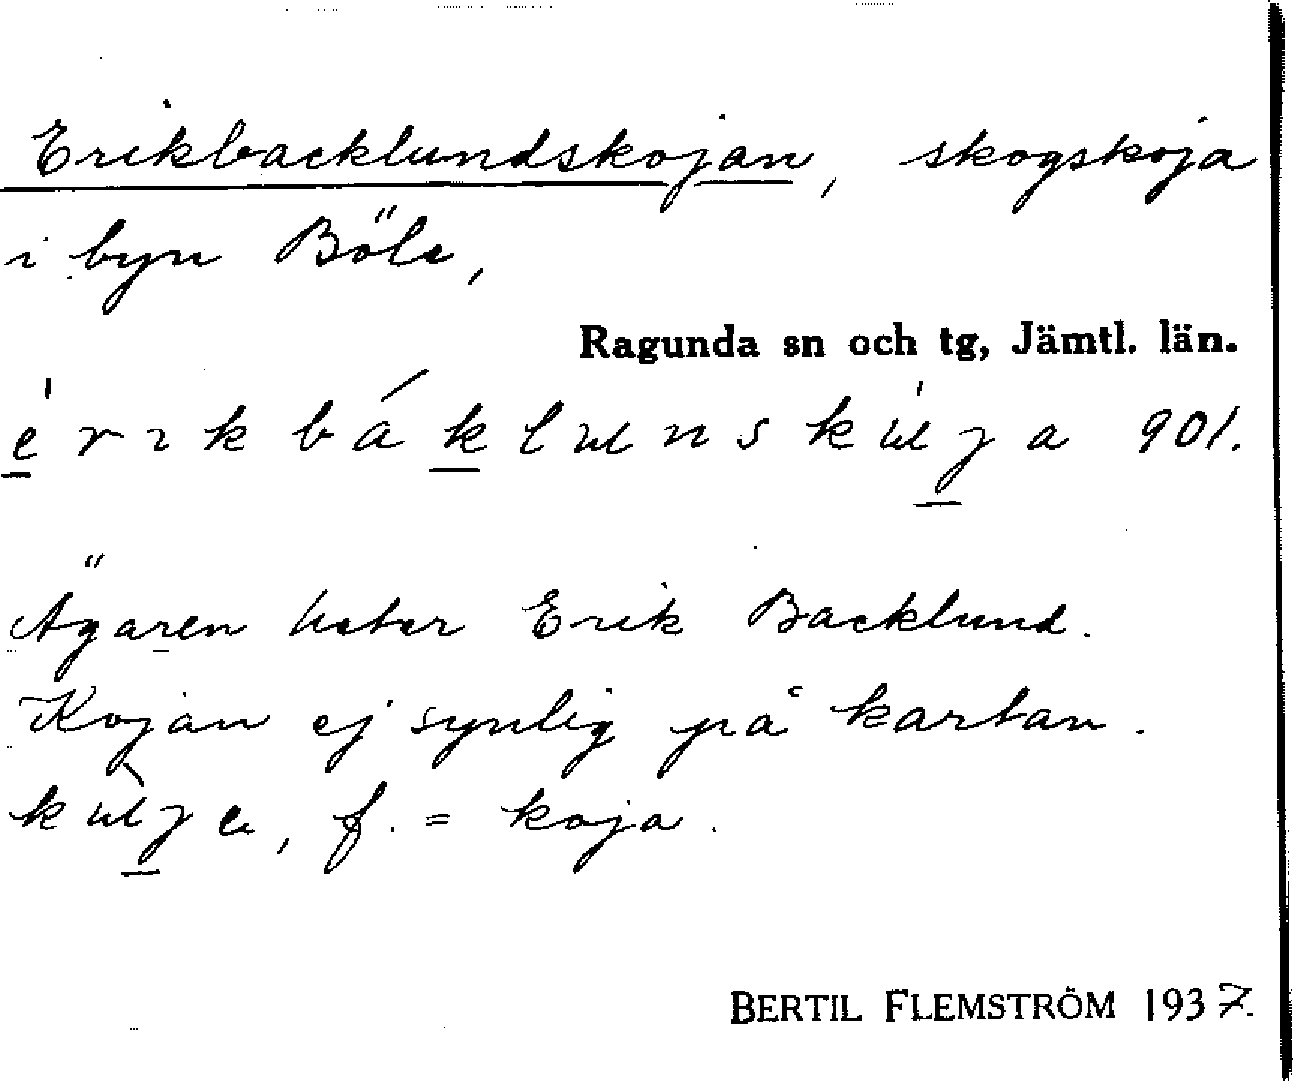 Erikbacklundskojan, skogskoja
i byn Böle,
Ragunda sn och tg, Jämtl. län.
érikbáklunskúja 901.
Ägaren heter Erik Backlund.
Kojan ej synlig på kartan.
kùja, f. = koja.
BERTIL FLEMSTRÖM 1937.